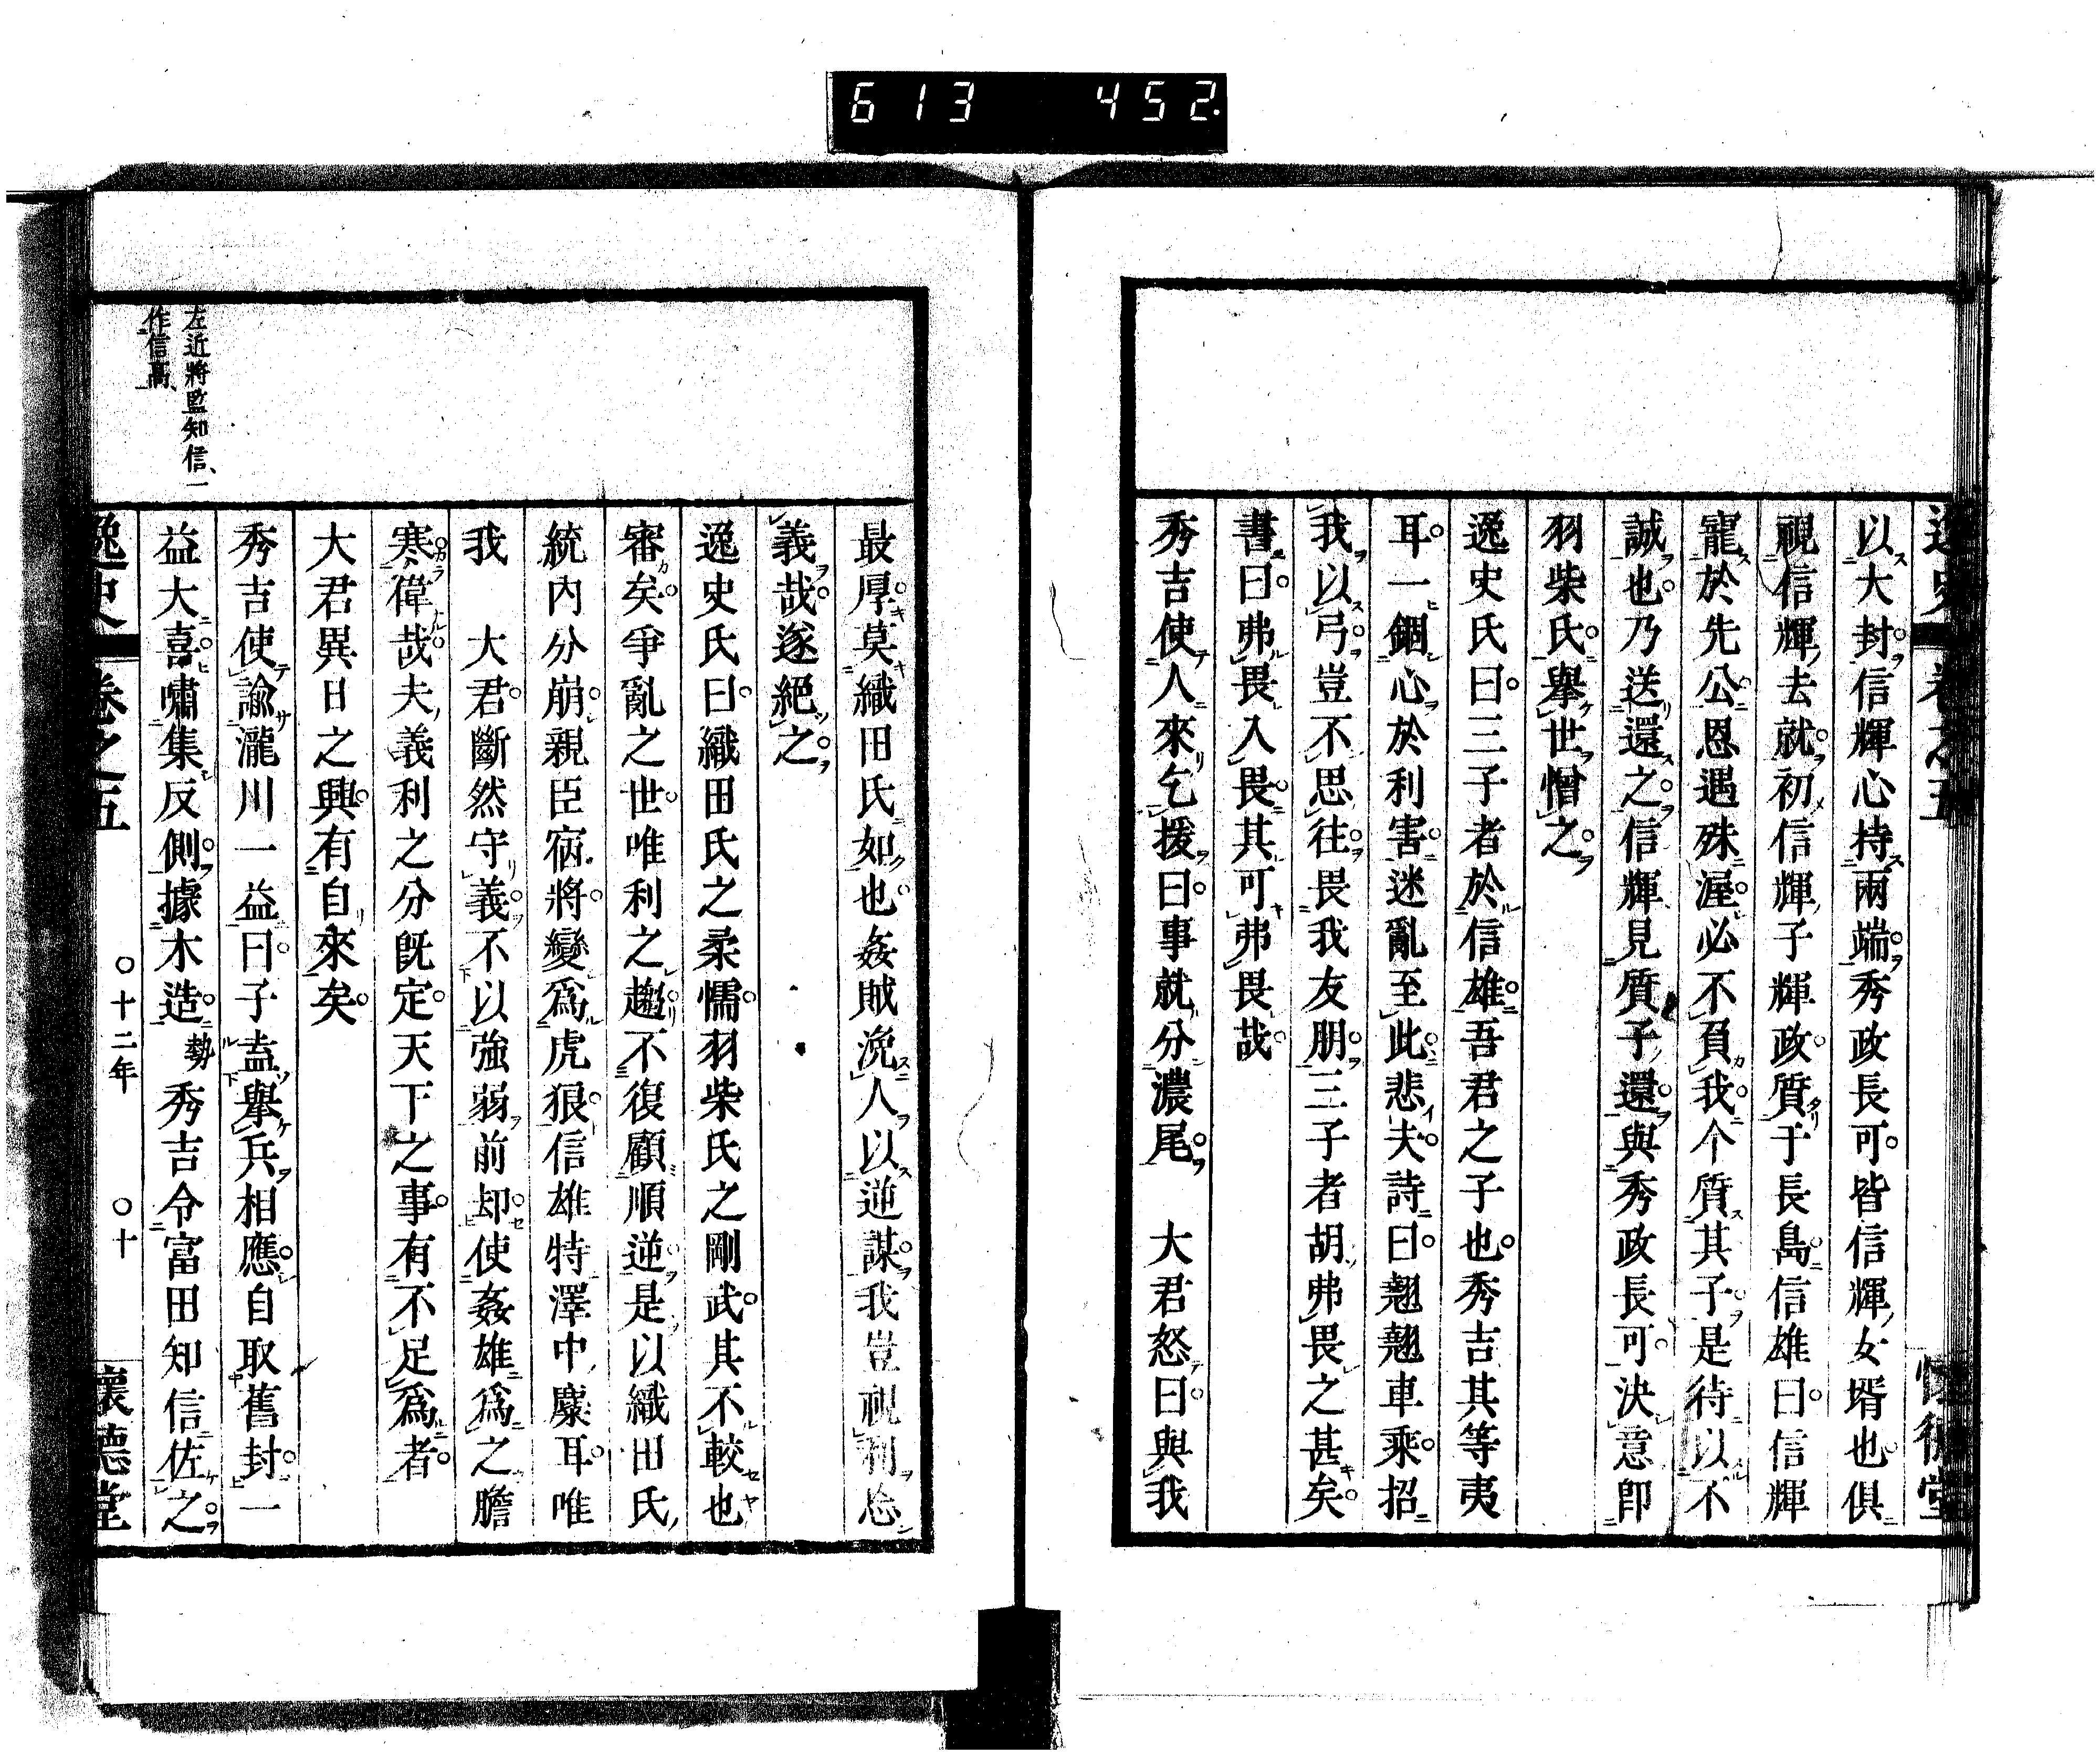 613 452.
逸史 卷之五 懷德堂
以大封信輝心持兩端秀政長可皆信輝女壻也俱
視信輝去就初信輝子輝政質于長島信雄曰信輝
寵於先公恩遇殊渥必不負我个質其子是待以不
誠也乃送還之信輝見質子還與秀政長可決意卽
羽柴氏擧世憎之
逸史氏曰三子者於信雄吾君之子也秀吉其等夷
耳一錮心於利害迷亂至此悲夫詩曰翹翹車乘招
我以弓豈不思往畏我友朋三子者胡弗畏之甚矣
書曰弗畏入畏其可弗畏哉
秀吉使人來乞援曰事就分濃尾 大君怒曰與我
最厚莫織田氏如也姦賊浼人以逆謀我豈視利忘
義哉遂絕之
逸史氏曰織田氏之柔懦羽柴氏之剛武其不較也
審矣爭亂之世唯利之趨不復顧順逆是以織田氏
統內分崩親臣宿將變爲虎狼信雄特澤中麋耳唯
我 大君斷然守義不以強弱前却使姦雄爲之膽
寒偉哉夫義利之分旣定天下之事有不足爲者
大君異日之興有自來矣
秀吉使諭瀧川一益曰子盍擧兵相應自取舊封一
益大喜嘯集反側據木造勢秀吉令富田知信佐之
左近將監知信、一
作信高、
逸史 卷之五 〇十二年 〇十 懷德堂